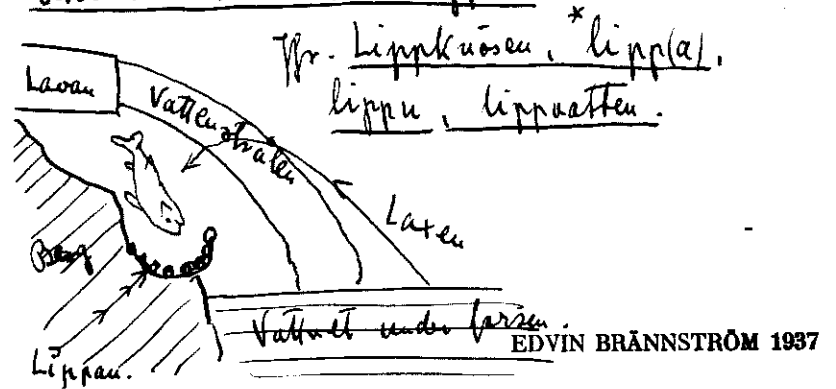 Jfr. Lippknösen, *lipp(a),
lippu, lippvatten.
Lavan
Vattenstrålen
Laxen
Berg
Lippan.
Vattnet under forsen.
EDVIN BRÄNNSTRÖM 1937